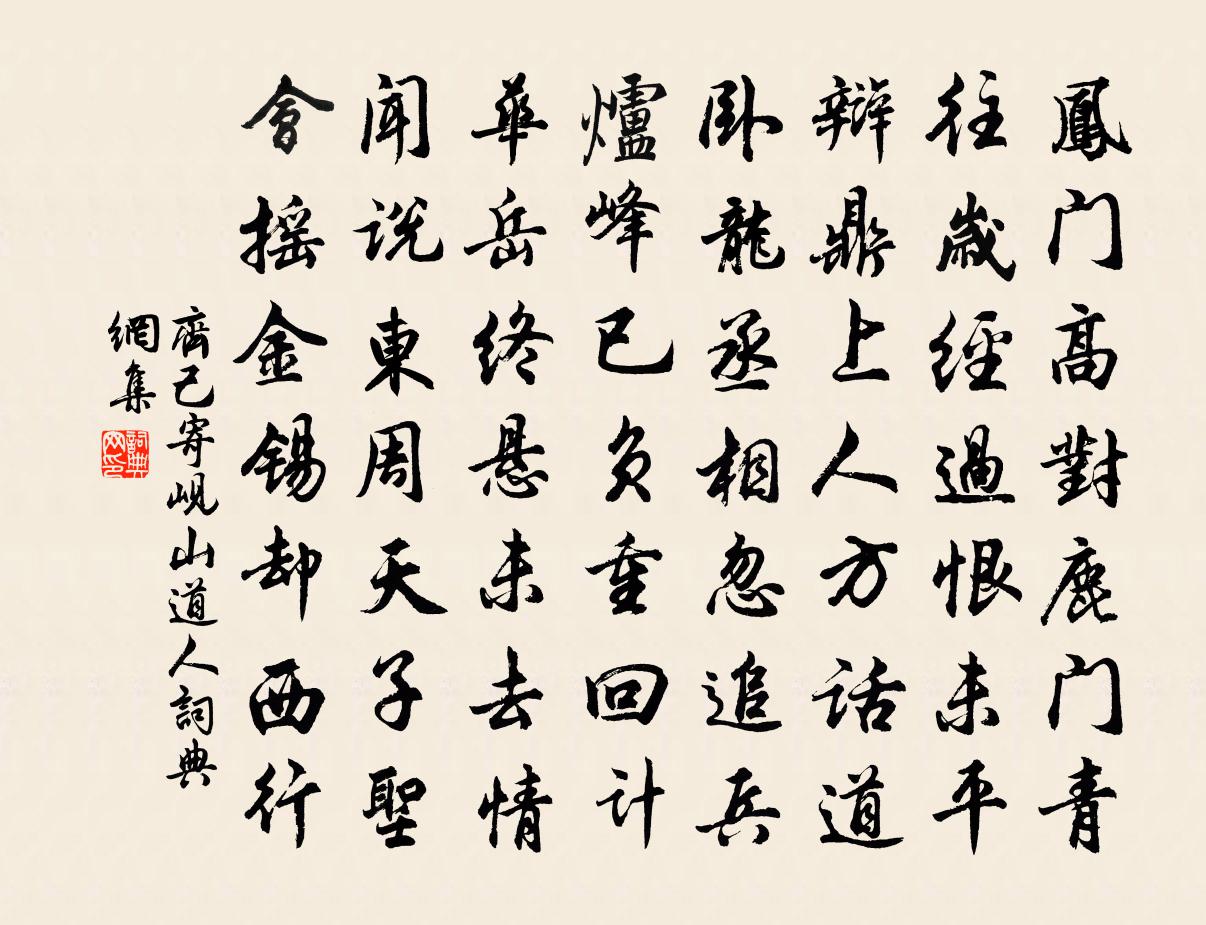 鳳門高對鹿門青
往歲經過恨未平
辯鼎上人方話道
卧龍丞相忽追兵
爐峰已負重回計
華岳終懸未去情
聞説東周天子聖
會搖金錫却西行
齊己寄峴山道人詞典
網集
詞典
网印